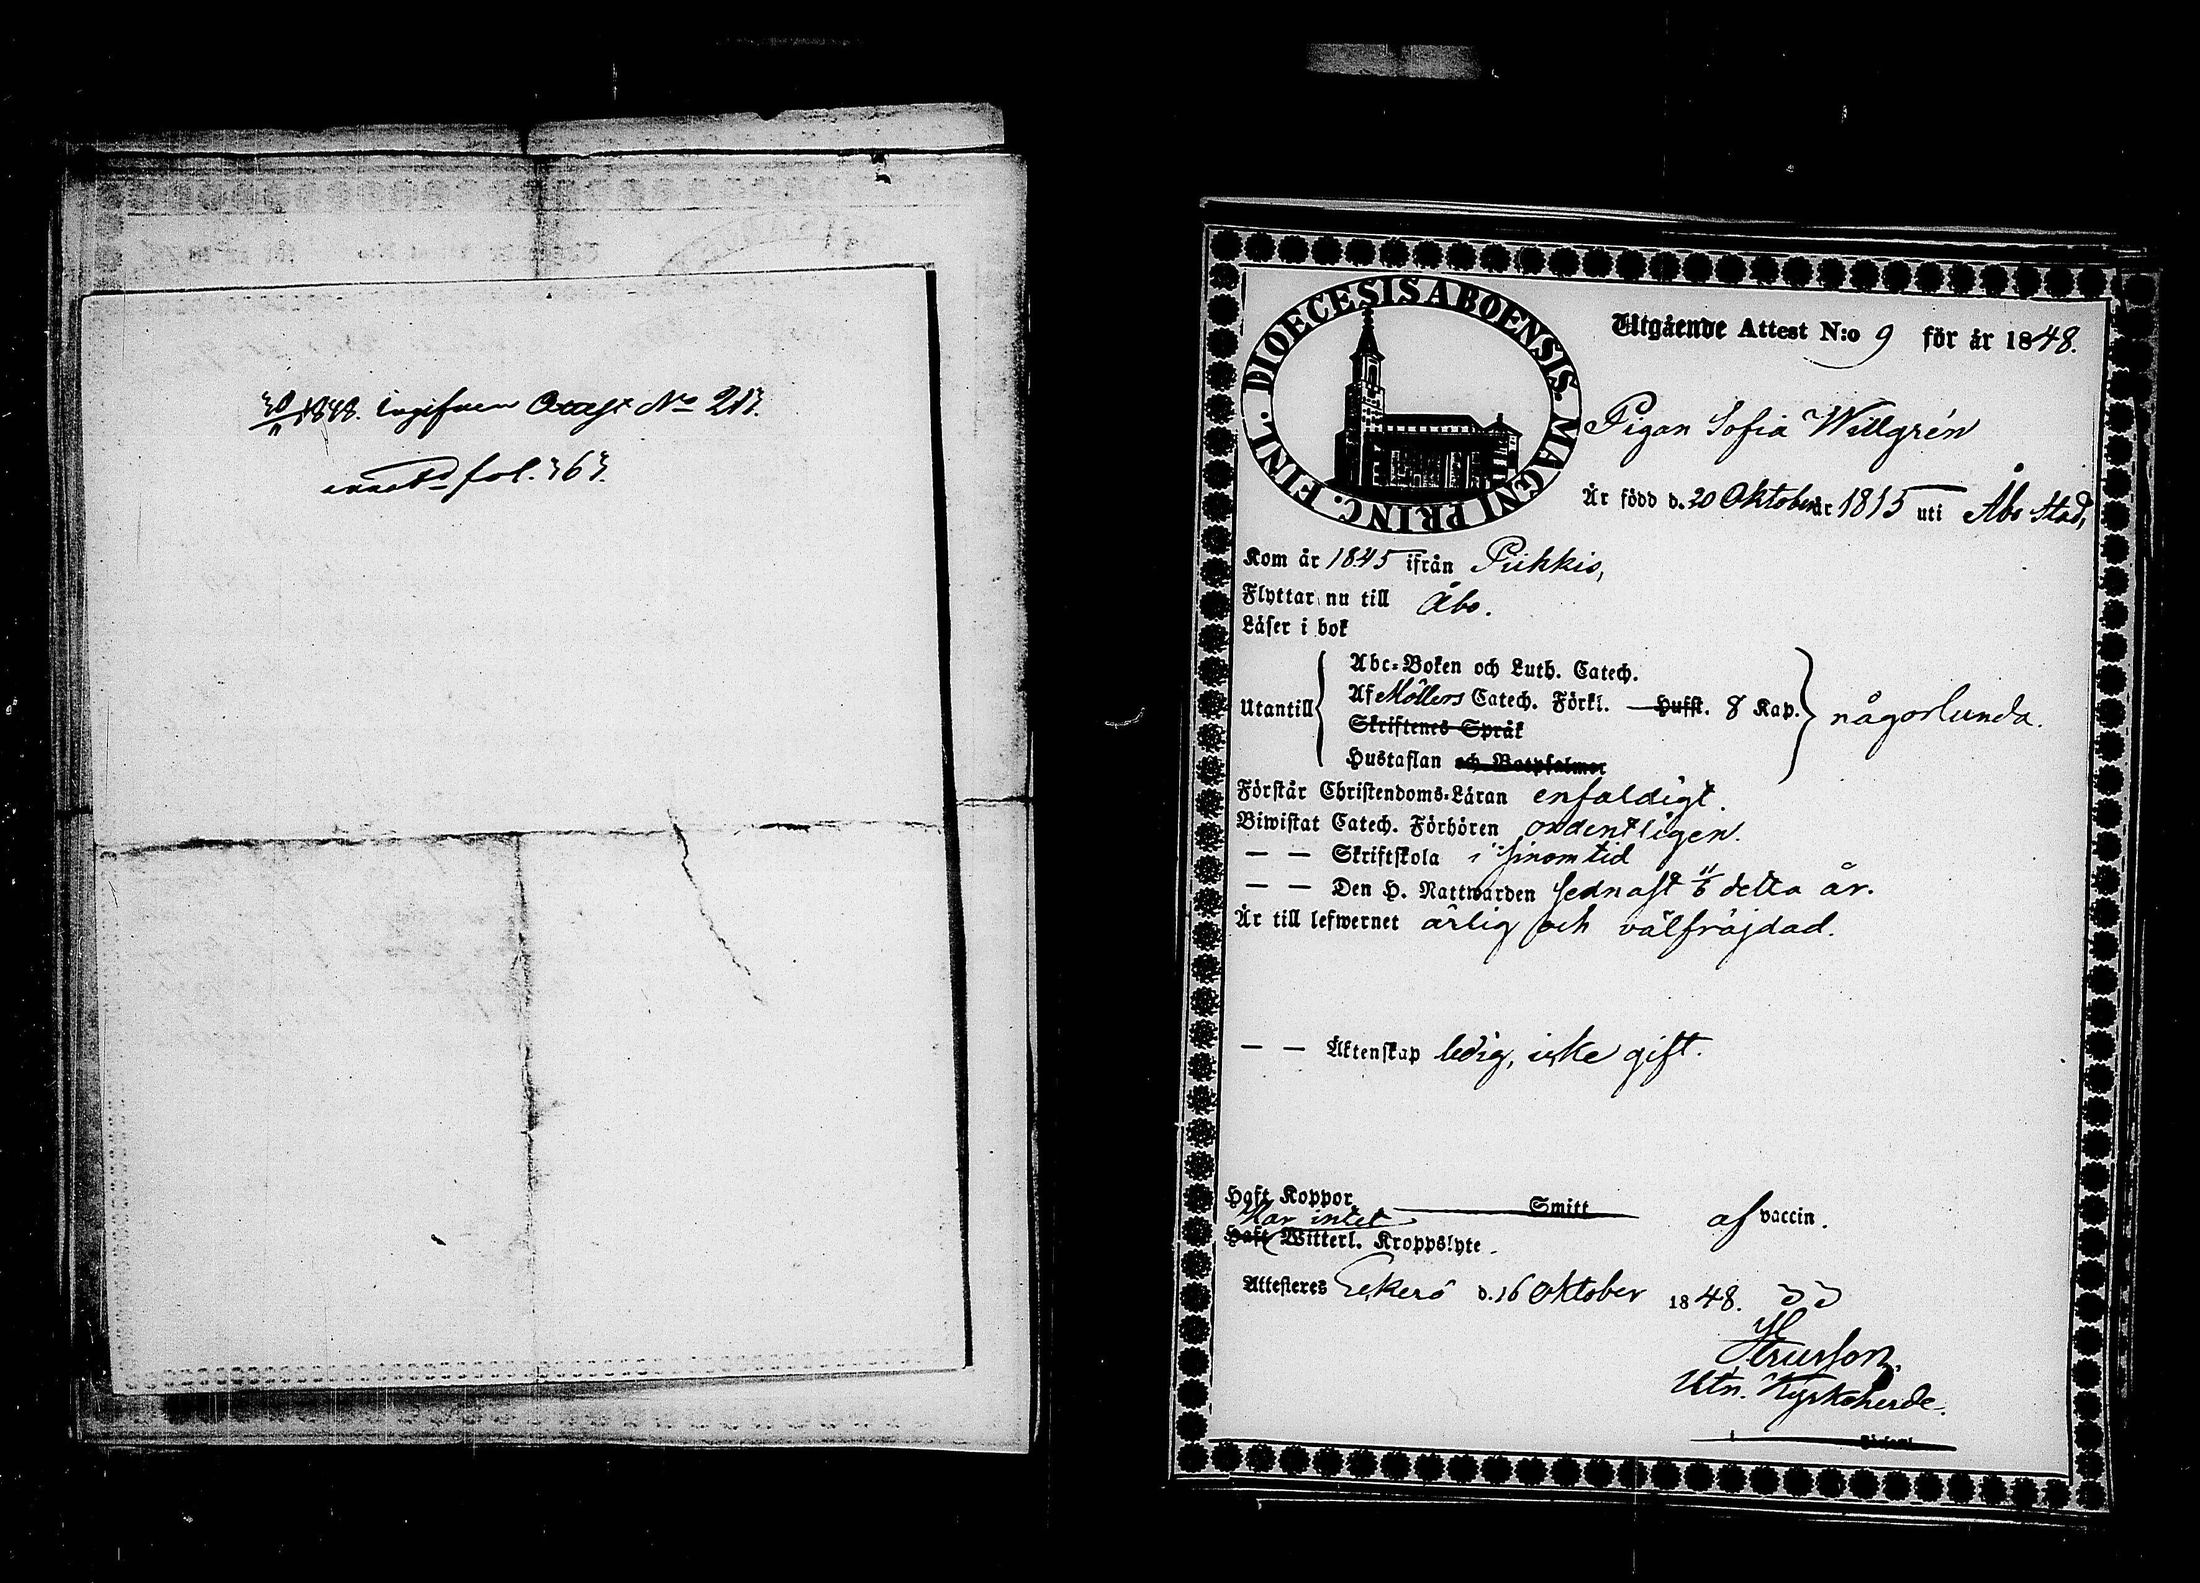 30/11 1848. ingifven Attest No 213.
fol. 363.
DIOECESIS ABOENSIS. MAGNI PRINC. FINL.
Utgående Attest N:o 9 för år 1848.
Pigan Sofia Willgrén
Är född d. 20 Oktober år 1815 uti Åbo Stad,
Kom år 1845 ifrån Piikkis,
Flyttar nu till Åbo.
Läser i bok
Abc-Boken och Luth. Catech.
Utantill Af Möllers Catech. Förkl. Hufst. 8 Kap. någorlunda.
Skriftenes Språk
Hustaflan och Botpsalmer
Förstår Christendoms-Läran enfaldigt.
Biwistat Catech. Förhören ordentligen.
— — Skriftskola i sinom tid
— — Den H. Nattwarden sednast 11/6 detta år.
Är till lefwernet ärlig och välfräjdad.
— — Äktenskap ledig, icke gift.
Haft Koppor Smitt af vaccin.
Har intet
Haft Witterl. Kroppslyte.
Attesteres Eckerö d. 16 Oktober 1848.
Utn. Kyrkoherde.